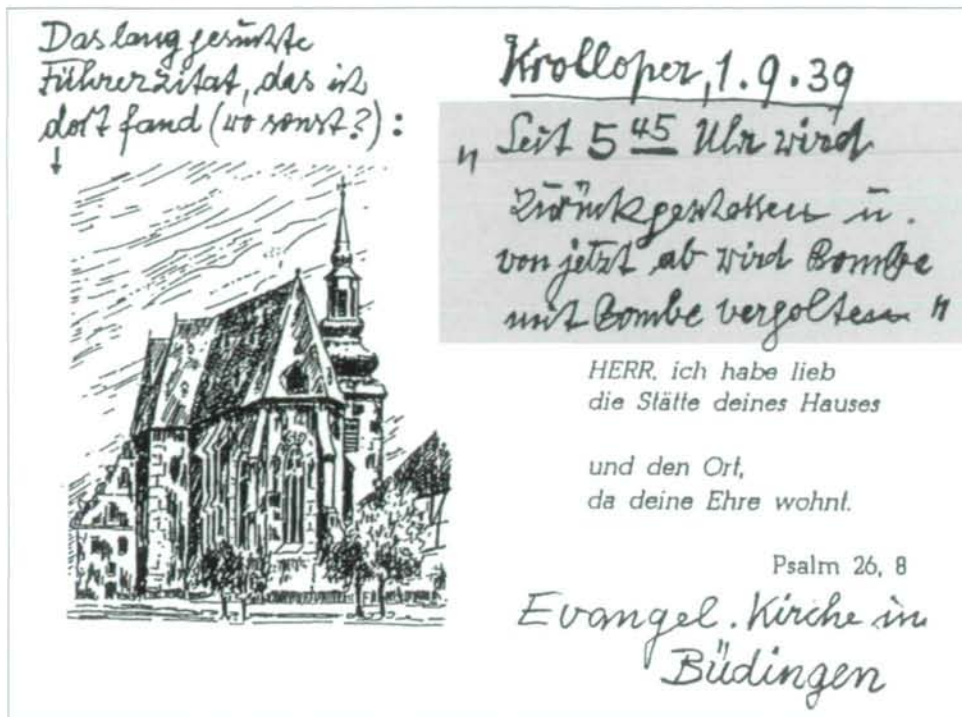 Das lang gesuchte
Führerzitat, das ich
dort fand (wo sonst?):
Krolloper, 1.9.39
"Seit 5 45 Uhr wird
zurückgeschossen u.
von jetzt ab wird Bombe
mit Bombe vergolten"
HERR, ich habe lieb
die Stätte deines Hauses
und den Ort,
da deine Ehre wohnt.
Psalm 26, 8
Evangel. Kirche in
Büdingen